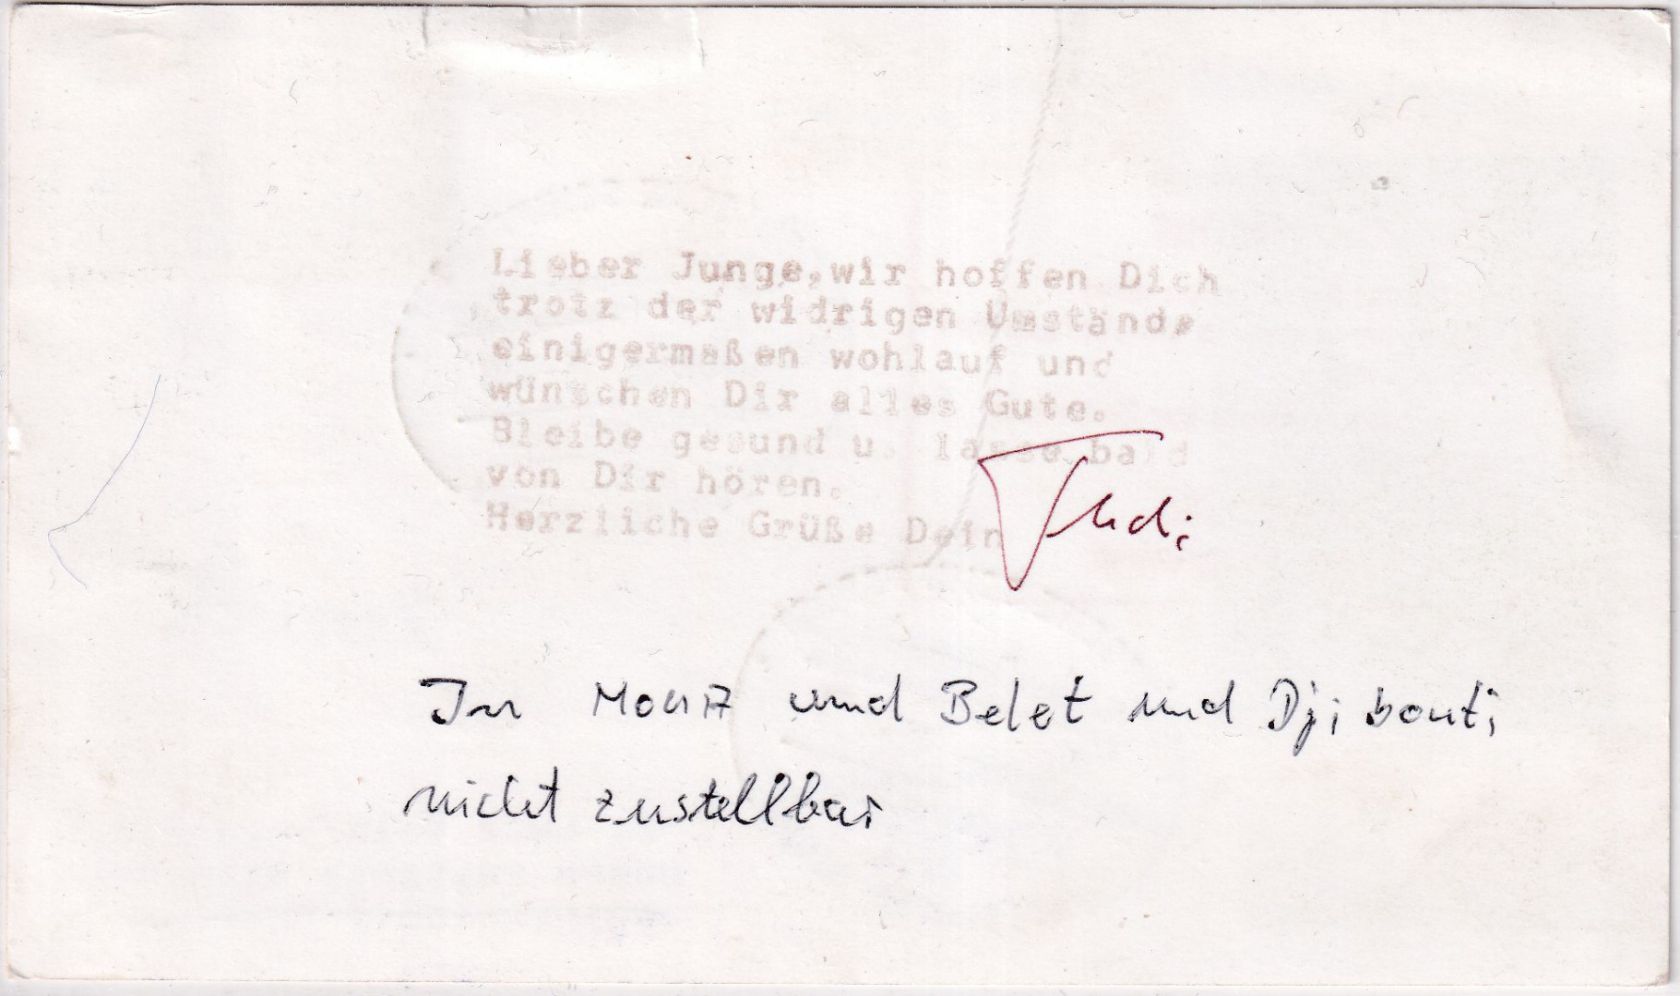 Lieber Junge,wir hoffen Dich
trotz der widrigen Umstände
einigermaßen wohlauf und
wünschen Dir alles Gute.
Bleibe gesund u. lasse bald
von Dir hören.
Herzliche Grüße Dein
In und Belet und Djibouti
nicht zustellbar